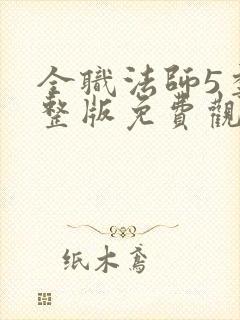 全職法師5季
整版免費觀
纸木鸢